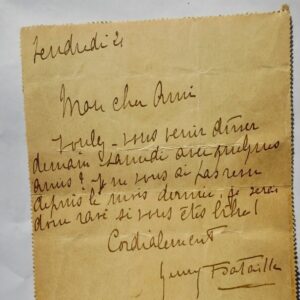 Vendredi 21
Mon cher Ami
Voulez-vous venir dîner
demain samedi avec quelques
amis ? Je ne vous ai pas revu
depuis le mois dernier. Je serai
donc ravi si vous êtes libre !
Cordialement
Henry Bataille